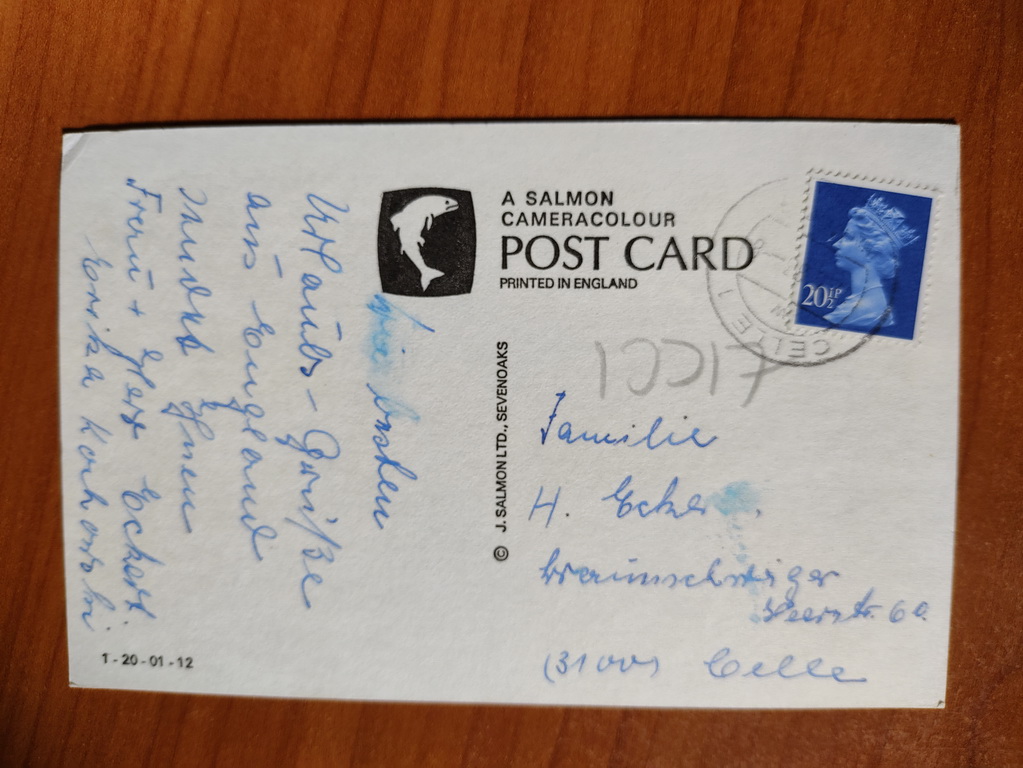 A SALMON
CAMERACOLOUR
POST CARD
PRINTED IN ENGLAND
20½P
CELLE 1
© J. SALMON LTD., SEVENOAKS
Die besten
Urlaubs-Grüße
aus England
sendet Ihnen
Frau + Herr Eckert
Erika
Familie
H. Ecker
Braunschweiger
Heerstr. 60
(3100) Celle
1-20-01-12